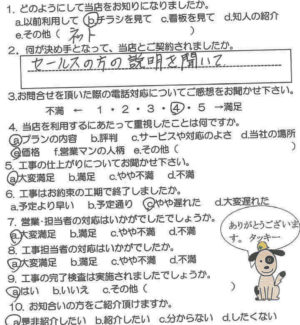 1. どのようにして当店をお知りになりましたか。
a.以前利用して b.チラシを見て c.看板を見て d.知人の紹介
e.その他( ネット )
2. 何が決め手となって、当店とご契約されましたか。
セールスの方の説明を聞いて
3.お問合せを頂いた際の電話対応についてご感想をお聞かせ下さい。
不満 ← 1・2・3・4・5 →満足
4. 当店を利用するにあたって重視したことは何ですか。
a.プランの内容 b.評判 c.サービスや対応のよさ d.当社の場所
e.価格 f.営業マンの人柄 e.その他(
5. 工事の仕上がりについてお聞かせ下さい。
a.大変満足 b.満足 c.やや不満 d.不満
6. 工事はお約束の工期で終了しましたか。
a.予定より早い b.予定通り c.やや遅れた d.大変遅れた
7. 営業・担当者の対応はいかがでしたでしょうか。
a.大変満足 b.満足 c.やや不満 d.不満
8. 工事担当者の対応はいかがでしたか。
a.大変満足 b.満足 c.やや不満 d.不満
9. 工事の完了検査は実施されましたでしょうか。
a.はい b.いいえ c.その他(
10. お知合いの方をご紹介頂けますか。
a.是非紹介したい b.紹介したい c.分からない d.したくない
ありがとうございま
す。 タッキー